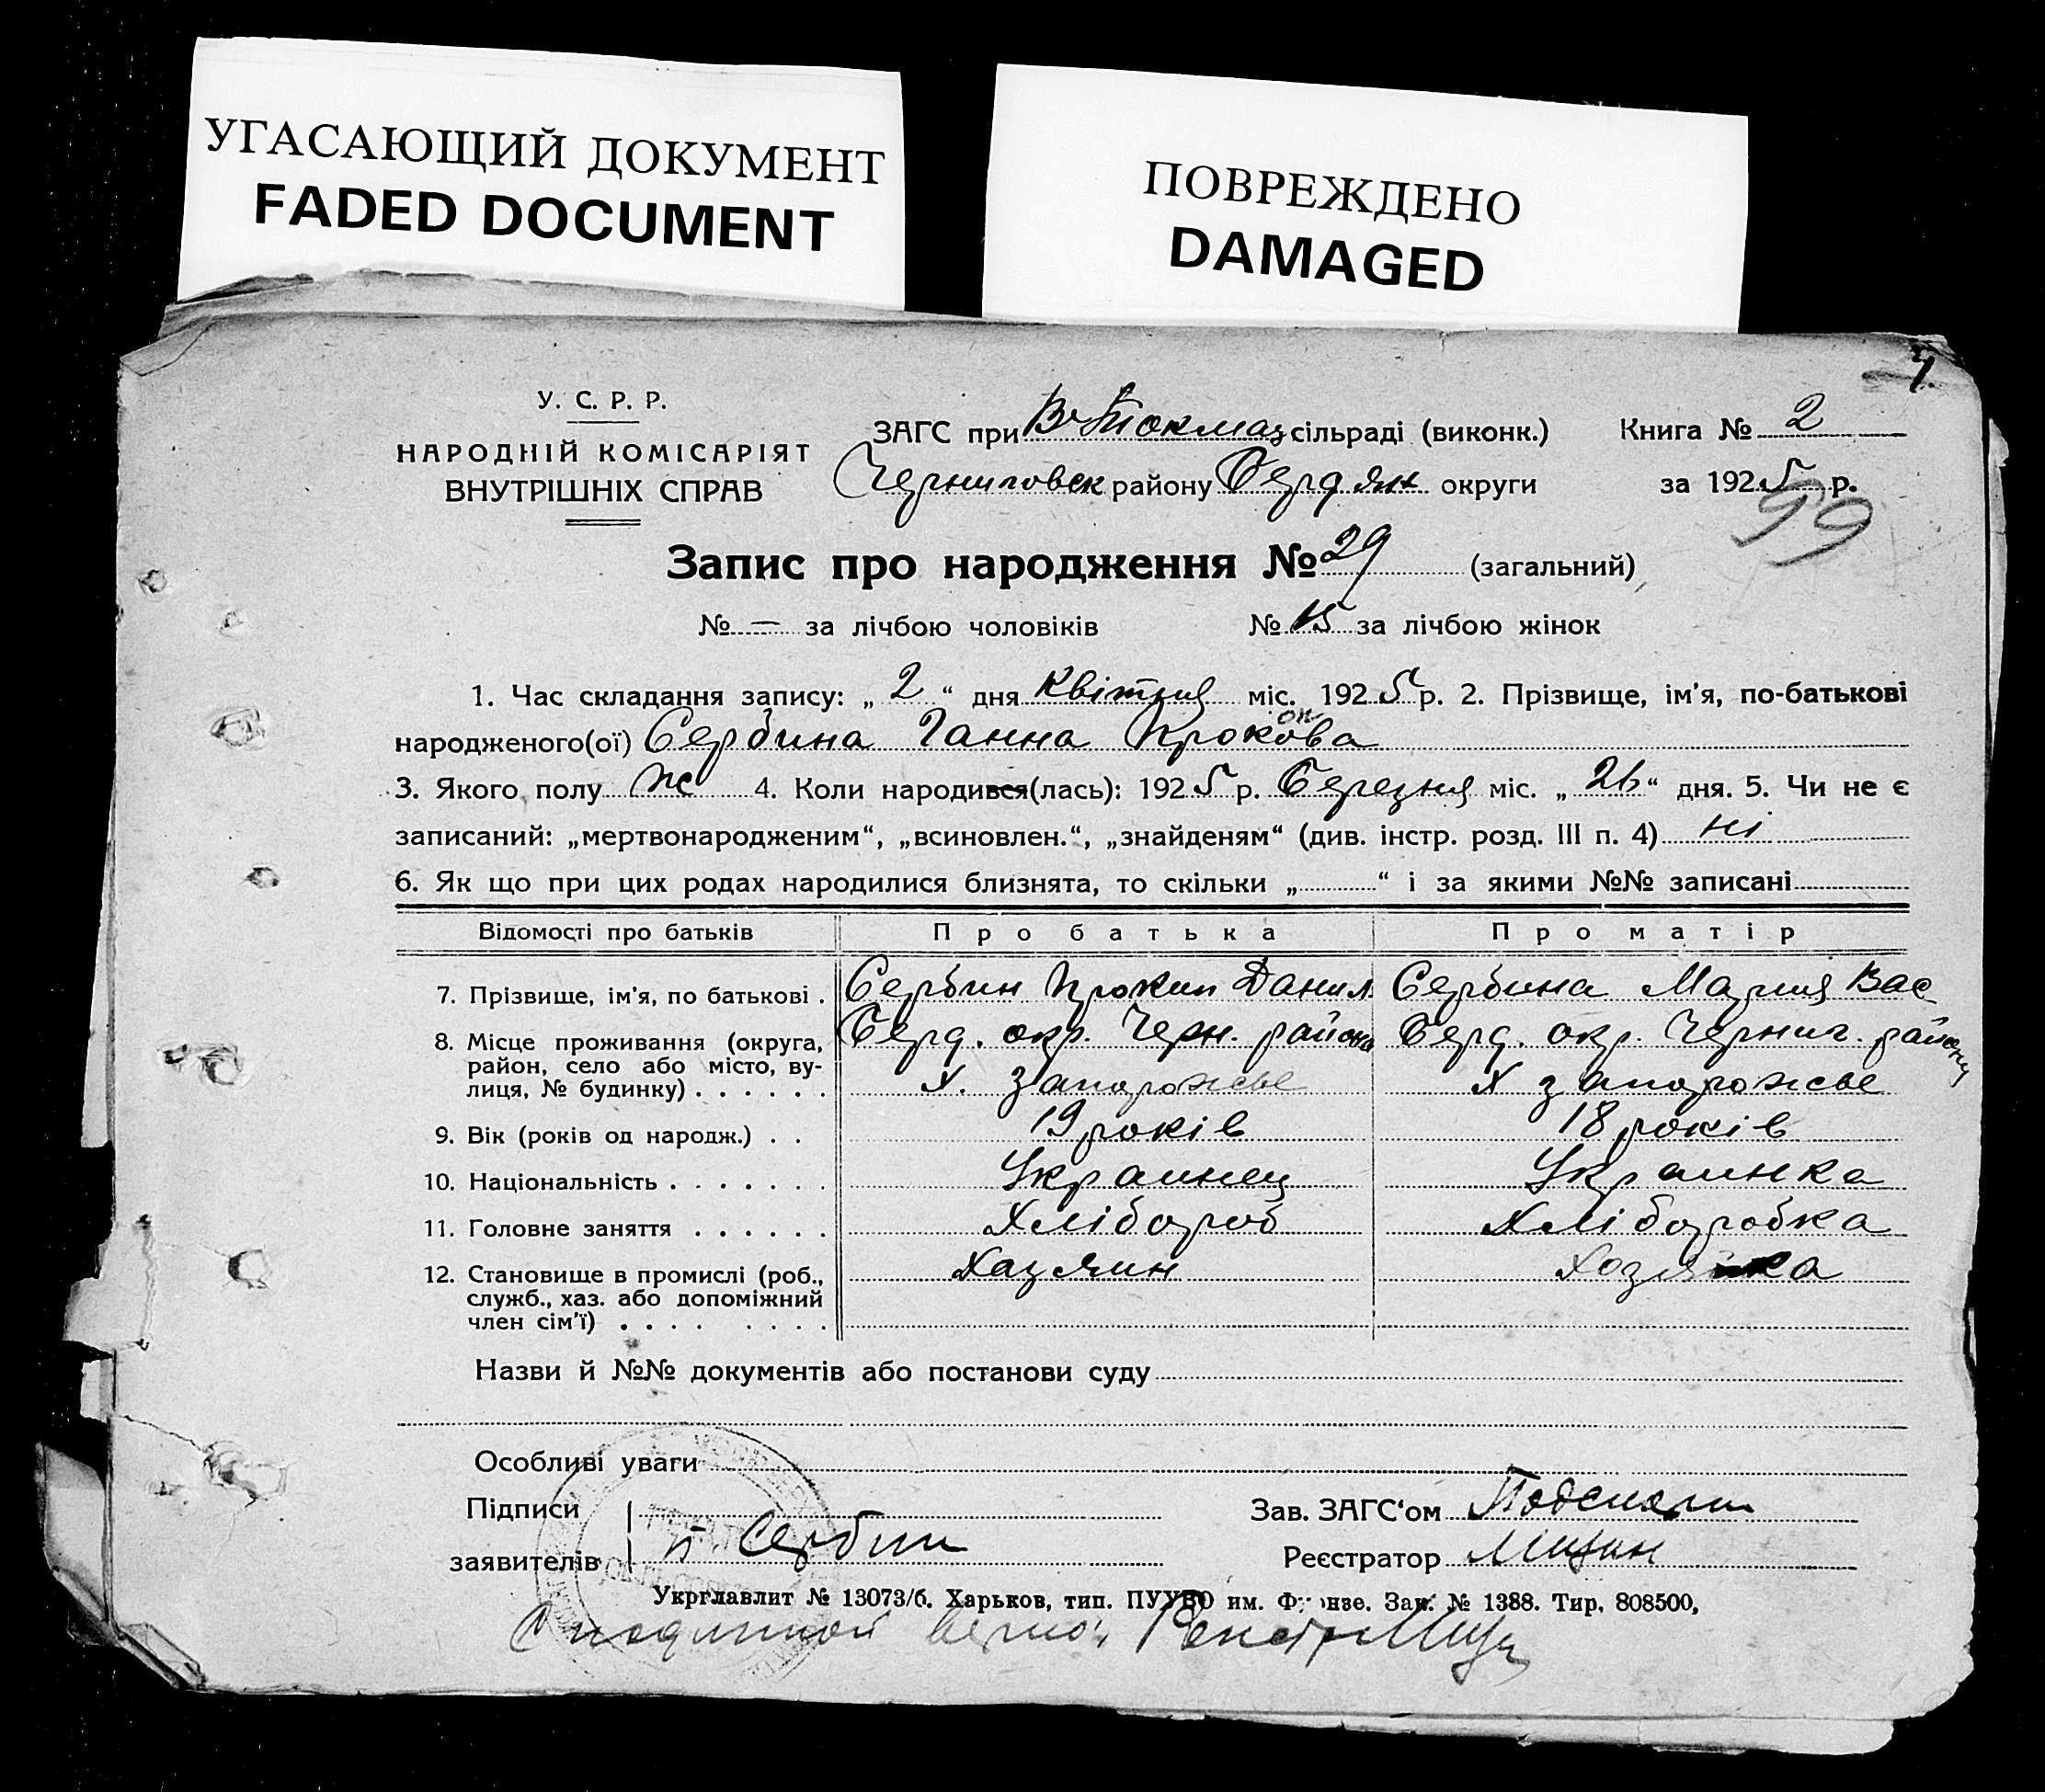 УГАСАЮЩИЙ ДОКУМЕНТ
FADED DOCUMENT
ПОВРЕЖДЕНО
DAMAGED
У. С. Р. Р.
НАРОДНІЙ КОМІСАРІЯТ
ВНУТРІШНІХ СПРАВ
ЗАГС при В Токмац сільраді (виконк.)
Черниговск району Бердян округи
Книга № 2
за 1925 р.
99
Запис про народження № 29 (загальний)
№ — за лічбою чоловіків № 15 за лічбою жінок
1. Час складання запису: „ 2 “ дня Квітня міс. 1925 р. 2. Прізвище, ім'я, по-батькові
народженого(ої) Сербина Ганна Прокова
3. Якого полу ж 4. Коли народився(лась): 1925 р. Березня міс. „ 26 “ дня. 5. Чи не є
записаний: „мертвонародженим“, „всиновлен.“, „знайденям“ (див. інстр. розд. III п. 4) ні
6. Як що при цих родах народилися близнята, то скільки „ “ і за якими №№ записані
Відомості про батьків Про батька Про матір
7. Прізвище, ім'я, по батькові . Сербин Прокип Данил. Сербина Мария Вас
8. Місце проживання (округа, район, село або місто, вулиця, № будинку) . . . . . . Берд. окр. Черн. района Берд. окр. Черниг. району
Х. Запорожье Х Запорожье
9. Вік (років од народж.) . . 19 років 18 років
10. Національність . . . . . . . Украинец Украинка
11. Головне заняття . . . . . . Хлібороб Хліборобка
12. Становище в промислі (роб., служб., хаз. або допоміжний член сім'ї) . . . . . . . . Хазяин Хозяйка
Назви й №№ документів або постанови суду
Особливі уваги
Підписи
заявителів П. Сербин
Зав. ЗАГС'ом
Реєстратор Мицин
Укрглавлит № 13073/б. Харьков, тип. ПУУВО им. Фрунзе. Зак. № 1388. Тир. 808500,
С подлинной верно: